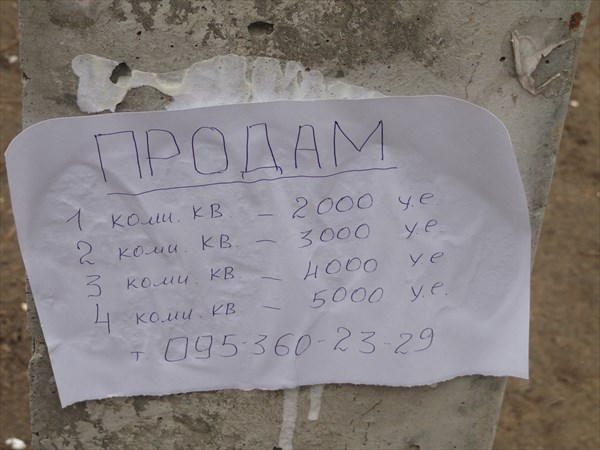 ПРОДАМ
1 комн. кв. – 2000 у.е.
2 комн. кв. – 3000 у.е.
3 комн. кв. – 4000 у.е
4 комн. кв – 5000 у.е.
т 095-360-23-29